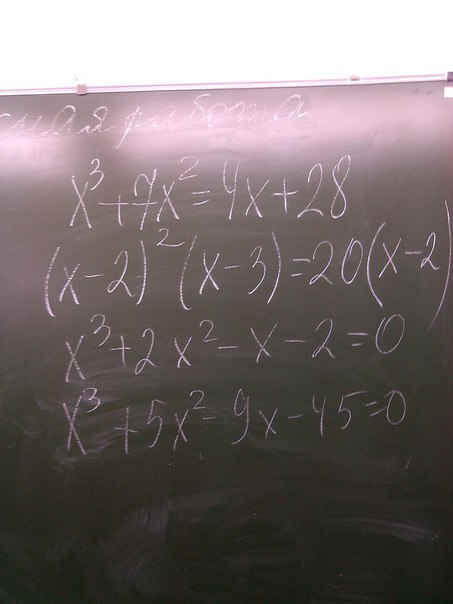 работа
x³+7x²=4x+28
(x-2)²(x-3)=20(x-2)
x³+2x²-x-2=0
x³+5x²-9x-45=0